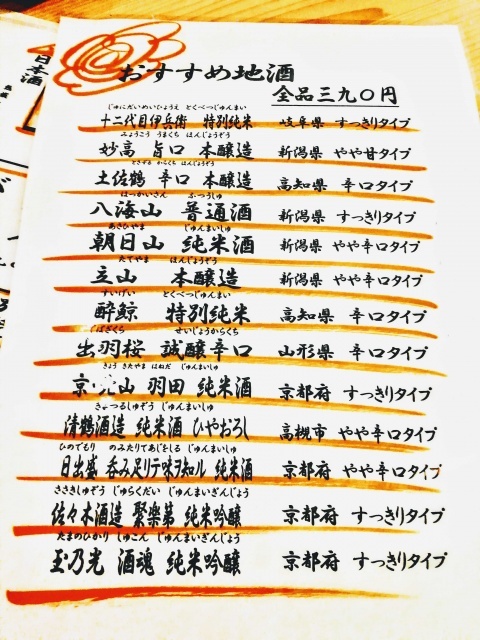 日本酒
おすすめ地酒
全品三九〇円
じゅにだいめいひょうえ とくべつじゅんまい
十二代目伊兵衛 特別純米 岐阜県 すっきりタイプ
みょうこう うまくち ほんじょうぞう
妙高 旨口 本醸造 新潟県 やや甘タイプ
とさづる からくち ほんじょうぞう
土佐鶴 辛口 本醸造 高知県 辛口タイプ
はっかいさん ふつうしゅ
八海山 普通酒 新潟県 すっきりタイプ
あさひやま じゅんまいしゅ
朝日山 純米酒 新潟県 やや辛口タイプ
たてやま ほんじょうぞう
立山 本醸造 新潟県 やや辛口タイプ
すいげい とくべつじゅんまい
酔鯨 特別純米 高知県 辛口タイプ
でわざくら せいじょうからくち
出羽桜 誠醸辛口 山形県 辛口タイプ
きょう きたやま はねだ じゅんまいしゅ
京 山 羽田 純米酒 京都府 すっきりタイプ
きよつるしゅぞう じゅんまいしゅ
清鶴酒造 純米酒 ひやおろし 高槻市 やや辛口タイプ
ひのでもり のみたりてあじをしる じゅんまいしゅ
日出盛 呑み足リテ味ヲ知ル 純米酒 京都府 やや辛口タイプ
ささきしゅぞう じゅらくだい じゅんまいぎんじょう
佐々木酒造 聚楽第 純米吟醸 京都府 すっきりタイプ
たまのひかり しゅこん じゅんまいぎんじょう
玉乃光 酒魂 純米吟醸 京都府 すっきりタイプ